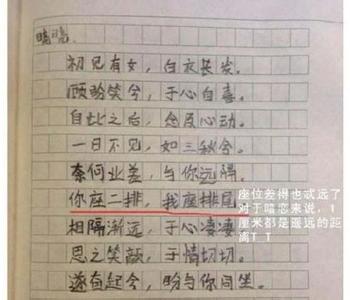 暗恋.
初见有女，白衣长发。
顾盼笑兮，于心自喜。
自此之后，念及心动。
一日不见，如三秋兮。
奈何业差，与你远隔。
你座二排，我座排尾
相隔渐远，于心凄凄。
思之笑颜，于情切切。
遂奋起兮，盼与你同坐。
座位差得也忒远了
对于暗恋来说，1
厘米都是遥远的距
离T_T